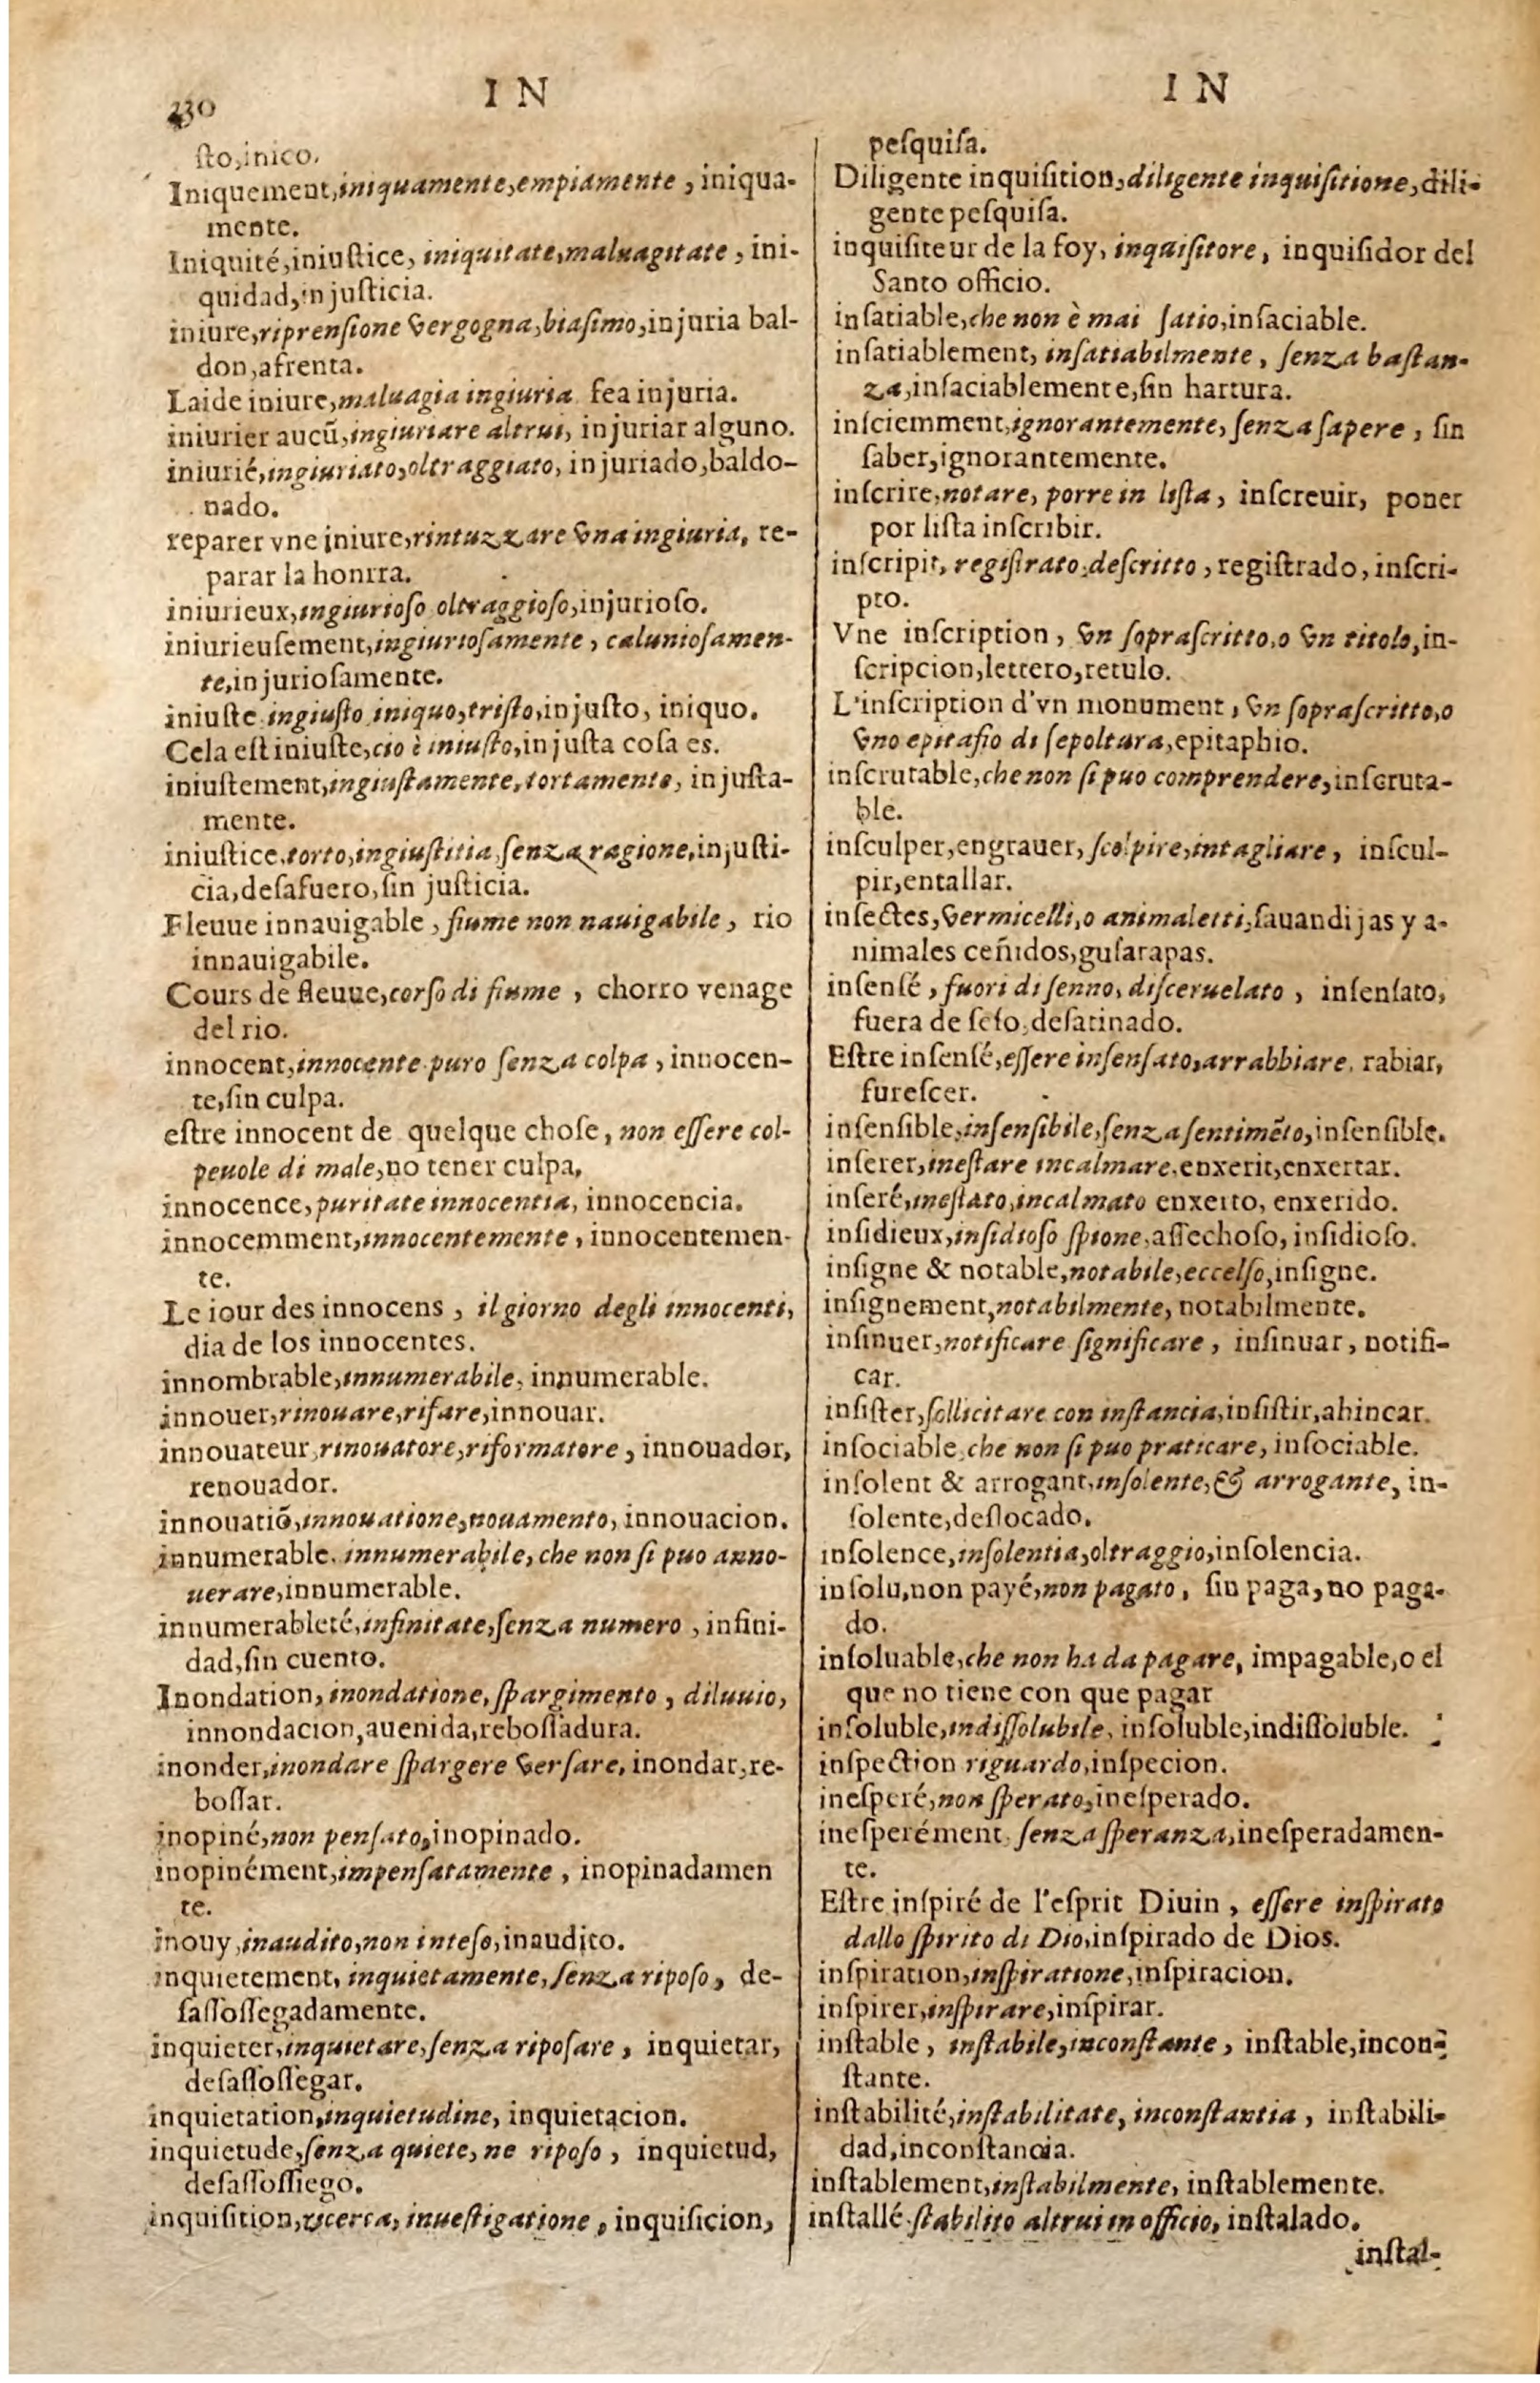 330 IN
sto,inico.
Iniquement,iniquamente,empiamente, iniqua-
mente.
Iniquité,iniustice, iniquitate,maluagitate, ini-
quidad,injusticia.
iniure,riprensione vergogna,biasimo,injuria bal-
don,afrenta.
Laide iniure,maluagia ingiuria fea injuria.
iniurier aucũ,ingiuriare altrui, injuriar alguno.
iniurié,ingiuriato,oltraggiato, injuriado,baldo-
nado.
reparer vne iniure,rintuzzare vna ingiuria, re-
parar la honrra.
iniurieux,ingiurioso oltraggioso,injurioso.
iniurieusement,ingiuriosamente, caluniosamen-
te,injuriosamente.
iniuste ingiusto iniquo,tristo,injusto, iniquo.
Cela est iniuste,cio è iniusto,injusta cosa es.
iniustement,ingiustamente,tortamente, injusta-
mente.
iniustice,torto,ingiustitia,senza ragione,injusti-
cia,desafuero,sin justicia.
Fleuue innauigable, fiume non nauigabile, rio
innauigabile.
Cours de fleuue,corso di fiume, chorro venage
del rio.
innocent,innocente puro senza colpa, innocen-
te,sin culpa.
estre innocent de quelque chose, non essere col-
peuole di male,no tener culpa,
innocence,puritate innocentia, innocencia.
innocemment,innocentemente, innocentemen-
te.
Le iour des innocens, il giorno degli innocenti,
dia de los innocentes.
innombrable,innumerabile, innumerable.
innouer,rinouare,rifare,innouar.
innouateur,rinouatore,riformatore, innouador,
renouador.
innouatiõ,innouatione,nouamento, innouacion.
innumerable. innumerabile, che non si puo anno-
uerare,innumerable.
innumerableté,infinitate,senza numero, infini-
dad,sin cuento.
Inondation, inondatione, spargimento, diluuio,
innondacion,auenida,rebossadura.
inonder,inondare spargere versare, inondar,re-
bossar.
inopiné,non pensato,inopinado.
inopinément,impensatamente, inopinadamen
te.
inouy,inaudito,non inteso,inaudito.
inquietement, inquietamente,senza riposo, de-
sassossegadamente.
inquieter,inquietare,senza riposare, inquietar,
desassossegar.
inquietation,inquietudine, inquietacion.
inquietude,senza quiete, ne riposo, inquietud,
desassossiego.
inquisition,ricerca, inuestigatione, inquisicion,
IN
pesquisa.
Diligente inquisition,diligente inquisitione,dili-
gente pesquisa.
inquisiteur de la foy, inquisitore, inquisidor del
Santo officio.
insatiable,che non è mai satio,insaciable.
insatiablement, insatiabilmente, senza bastan-
za,insaciablemente,sin hartura.
insciemment,ignorantemente, senza sapere, sin
saber,ignorantemente.
inscrire,notare, porre in lista, inscreuir, poner
por lista inscribir.
inscripit, registrato,descritto, registrado, inscri-
pto.
Vne inscription, vn soprascritto,o vn titolo,in-
scripcion,lettero,retulo.
L'inscription d'vn monument, vn soprascritto,o
vno epitafio di sepoltura,epitaphio.
inscrutable,che non si puo comprendere,inscruta-
ble.
insculper,engrauer, scolpire,intagliare, inscul-
pir,entallar.
insectes, vermicelli,o animaletti,sauandijas y a-
nimales ceñidos,gusarapas.
insensé, fuori di senno, disceruelato, insensato,
fuera de seso,desatinado.
Estre insensé,essere insensato,arrabbiare, rabiar,
furescer.
insensible,insensibile,senza sentimẽto,insensible.
inserer,inestare incalmare,enxerir,enxertar.
inseré,inestato,incalmato enxerto, enxerido.
insidieux,insidioso spione,assechoso, insidioso.
insigne & notable,notabile,eccelso,insigne.
insignement,notabilmente, notabilmente.
insinuer,notificare significare, insinuar, notifi-
car.
insister,sollicitare con instancia,insistir,ahincar.
insociable,che non si puo praticare, insociable.
insolent & arrogant,insolente,& arrogante, in-
solente,deslocado.
insolence,insolentia,oltraggio,insolencia.
insolu,non payé,non pagato, sin paga,no paga-
do.
insoluable,che non ha da pagare, impagable,o el
que no tiene con que pagar
insoluble,indissolubile, insoluble,indissoluble.
inspection riguardo,inspecion.
inesperé,non sperato,inesperado.
inesperément senza speranza,inesperadamen-
te.
Estre inspiré de l'esprit Diuin, essere inspirato
dallo spirito di Dio,inspirado de Dios.
inspiration,inspiratione,inspiracion.
inspirer,inspirare,inspirar.
instable, instabile,inconstante, instable,incon-
stante.
instabilité,instabilitate, inconstantia, instabili-
dad,inconstancia.
instablement,instabilmente, instablemente.
installé stabilito altrui in officio, instalado.
instal-